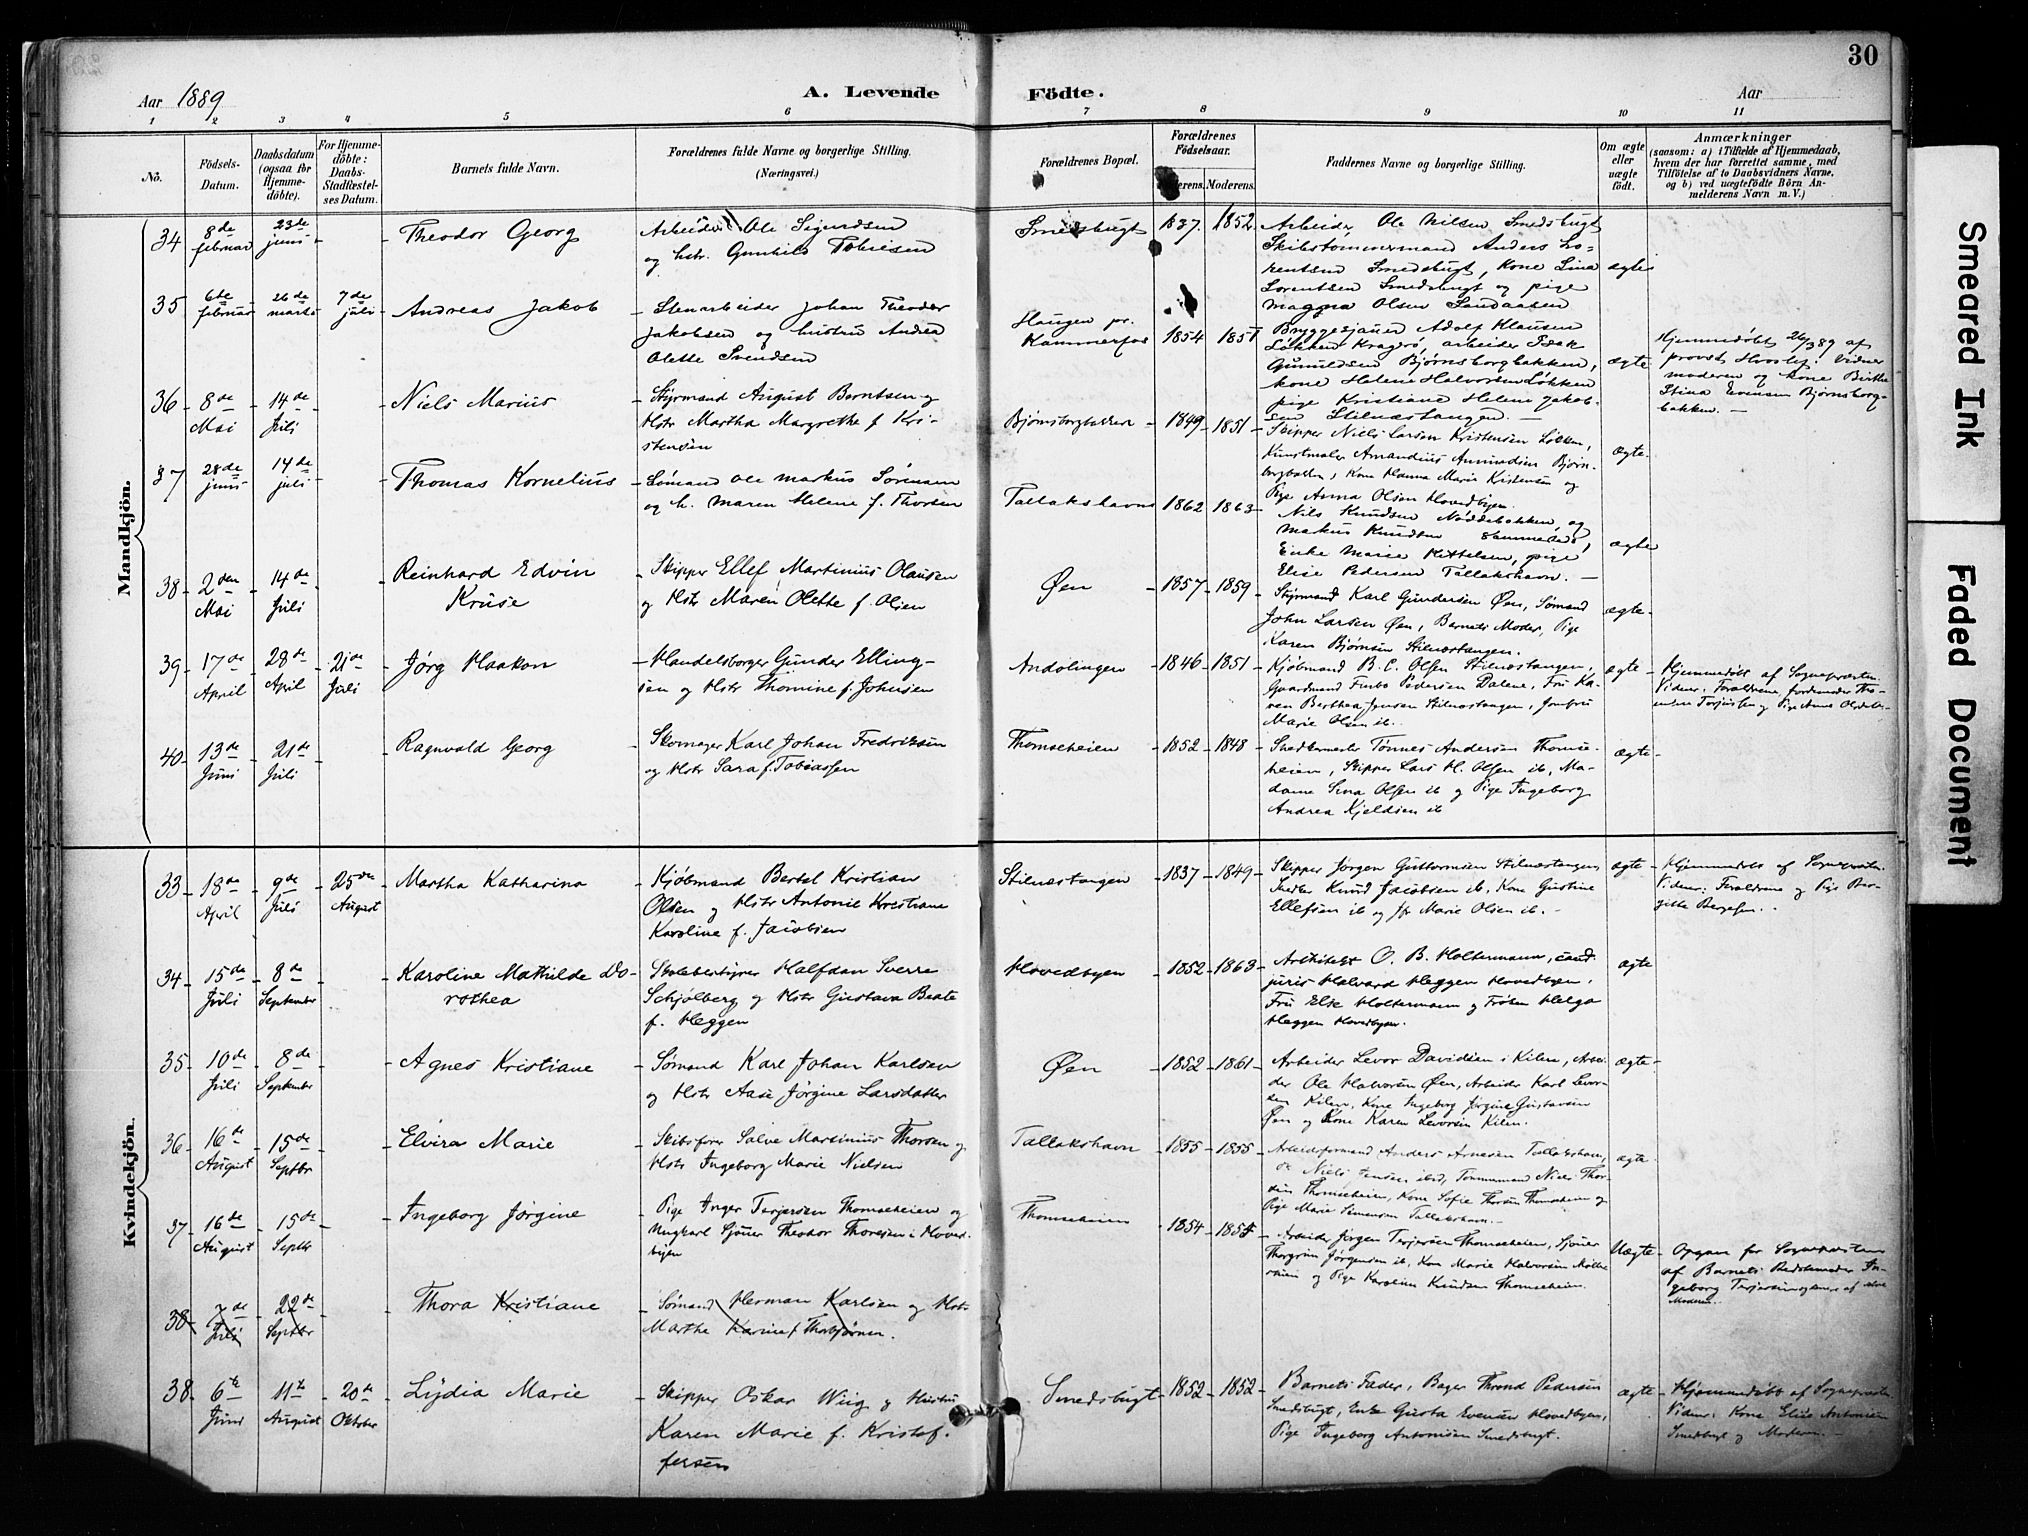 30
Aar 1889
A. Levende Födte.
Aar
1 2 3 4 5 6 7 8 9 10 11
No.
Födsels-Datum.
Daabsdatum (ogsaa for Hjemme-döbte).
For Hjemme-döbte: Daabs-Stadfæstel-ses Datum.
Barnets fulde Navn.
Forældrenes fulde Navne og borgerlige Stilling. (Næringsvei.)
Forældrenes Bopæl.
Forældrenes Födselsaar.
Moderens.
Faddernes Navne og borgerlige Stilling.
Om ægte eller uægte födt.
Anmærkninger
(saasom: a) i Tilfælde af Hjemmedaab, hvem der har forrettet samme, med Tilföielse af to Daabsvidners Navne, og b) ved uægtefödte Börn Anmelderens Navn m. V.)
Mandkjön.
34 8de februar 23de juni Theodor Georg
Arbeider Ole Sigurdsen
og hstr. Gunhild Tobiesen
Smedsbugt 1837. 1852.
Arbeider Ole Nilsen Smedsbugt
Skibstømmermand Anders Lo-
rentsen Smedsbugt, Kone Lina
Lorentsen Smedsbugt og pige
Magna Olsen Sandaasen
ægte
35 6te februar 26de marts 7de juli Andreas Jakob
Stenarbeider Johan Theodor
Jakobsen og hustru Andrea
Olette Svendsen
Haugen pr. Kammerfos 1854 1851
Bryggesjauer Adolf Klausen
Løkken Kragerø, arbeider Isak
Gunuldsen Bjørnsborgbakken,
kone Helene Halvorsen Løkken
pige Kristiane Helene Jakob-
sen Stilnæstangen.
ægte
Hjemmedøbt 26/3 89 af
provst Hvoslef. Vidner
moderen og kone Birthe
Stina Evensen Bjørnsborg-
bakken.
36 8de Mai 14de Juli Niels Marius
Styrmand August Berntsen og
Hstr Martha Margrethe f. Kri-
stensen
Bjørnsborgbakken 1849 1851
Skipper Niels Larsen Kristensen Løkken,
Kunstmaler Amandius Amundsen Bjørns-
borgbakken, Kone Hanna Marie Kristensen og
Pige Anna Olsen Hovedbyen.
ægte
37 28de juni 14de juli Thomas Kornelius
Sømand Ole Markus Sørensen
og h. Maren Helene f. Thorsen
Tallakshavn 1862 1863
Nils Knudsen Nøddebakken, og
Makus Knudsen sammesteds,
Enke Marie Kittelsen, pige
Elise Pedersen Tallakshavn.
ægte
38 2den Mai 14de Juli Reinhard Edvin Kruse
Skipper Ellef Martinius Olausen
og Hstr Maren Olette f. Olsen
Øen 1857 1859
Styrmand Karl Gundersen Øen, Sømand
John Larsen Øen, Barnets Moder, Pige
Karen Bjørnsen Stilnæstangen.
ægte
39 17de April 28de April 21de Juli Jørg Haakon
Handelsborger Gunder Elling-
sen og Hstr Thomine f. Johnsen
Andølingen 1846 1851
Kjøbmand B. C. Olsen Stilnæstangen,
Gaardmand Pedersen Dalene, Fru Ka-
ren Berthea Jensen Stilnæstangen, Jomfru
Marie Olsen ib.
ægte
Hjemmedøbt af Sognepræsten
Vidner: Forældrene,
40 13de Juni 21de Juli Ragnvald Georg
Skomager Karl Johan Fredriksen
og Hstr Sara f. Tobiassen
Thomseheien 1852 1848
Snedkermester Tønnes Andersen Thomse-
heien, Skipper Lars H. Olsen ib, Ma-
dame Sina Olsen ib og Pige Ingeborg
Andrea Kjeldsen ib
ægte
Kvindekjön.
33 18de April 9de Juli 25de August Martha Katharina
Kjøbmand Bertel Kristian
Olsen og Hstr Antonie Kristiane
Karoline f. Jacobsen
Stilnæstangen 1837 1849
Skipper Jørgen Guttormsen Stilnæstangen
Snedker Knud Jacobsen ib. Kone Gustine
Ellefsen ib og Jfr Marie Olsen ib.
ægte
Hjemmedøbt af Sognepræsten.
Vidner: Forældrene og Pige Ber-
gitte Bergesen.
34 15de Juli 8de September Karoline Mathilde Do-
rothea
Skolebestyrer Halfdan Sverre
Schjølberg og Hstr Gustava Beate
f. Heggen
Hovedbyen 1852 1863
Arkitekt O. B. Holtermann, cand.
juris Halvard Heggen Hovedbyen,
Fru Else Holtermann og Frøken Helga
Heggen Hovedbyen.
ægte
35 10de Juli 8de September Agnes Kristiane
Sømand Karl Johan Karlsen
og Hstr Aase Jørgine Larsdatter
Øen 1852 1861
Arbeider Levor Davidsen i Kilen, Arbei-
der Ole Halvorsen Øen, Arbeider Karl Levor-
sen Kilen, Kone Ingeborg Jørgine Gustavsen
Øen og Kone Karen Levorsen Kilen.
ægte
36 16de August 15de Septbr Elvira Marie
Skibsfører Salve Martinius Thorsen og
Hstr Ingeborg Marie Nielsen
Tallakshavn 1855 1855
Arbeidsformand Anders Arnesen Tallakshavn,
Niels Jensen ibid, Tømmermand Niels Thor-
sen Thomseheien, Kone Sofie Thorsen Thomseheien og
Pige Marie Simensen Tallakshavn.
ægte
37 16de August 15de Septbr Ingeborg Jørgine
Pige Inger Terjesen Thomseheien og
Ungkarl Sjouer Theodor Thoresen i Hoved-
byen
Thomseheien 1854 1855
Arbeider Jørgen Terjesen Thomseheien, Sjouer
Thorgrim Jørgensen ib, Kone Marie Halvorsen
og Pige Karoline Knudsen Thomseheien.
Uægte
Opgave for Sognepræsten
af Barnets Bedstemoder In-
geborg Terjesen
Moderen.
38 7de Juli 22de Septbr Thora Kristiane
Sømand Herman Karlsen og Hstr
Marthe Karine f. Thorbjørnsen.
38 6te Juni 11te August 20de Oktober Lydia Marie
Skipper Oskar Wiig og Hustru
Karen Marie f. Kristof-
fersen
Smedsbugt 1852 1852
Barnets Fader, Bager Thrond Pedersen
Smedsbugt, Enke Gusta Evensen Hovedbyen,
Pige Ingeborg Antonisen Smedsbugt.
ægte
Hjemmedøbt af Sognepræsten
Vidner: Kone Elise Antonisen
Smedsbugt og Moderen.
Smeared Ink
Faded Document